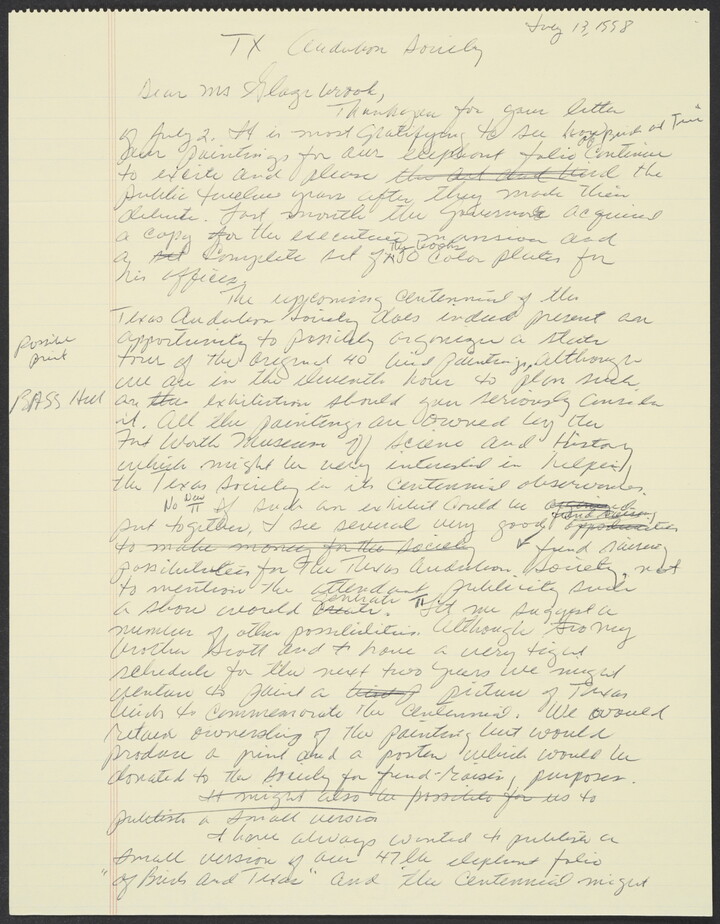 July 13, 1998
TX Audubon Society
Dear Ms
Thankyou for your letter
of July 2. It is most gratifying to see
our paintings for our elephant folio continue
to excite and please the art and the
public twelve years after they made their
debute. Last month the Governor acquired
a copy for the executive mansion and
a set complete set of the book's 40 color plates for
his office.
The upcoming centennial of the
Texas Audubon Society does indeed present an
opportunity to possibly organize a state
tour of the original 40 bird paintings, although
possible
print
we are in the eleventh hour to plan such
BASS Hall
an the exhibition should you seriously consider
it. All the paintings are owned by the
Fort Worth Museum of Science and History
which might be very interested in helping
the Texas Society in its centennial observances.
No New ¶ If such an exhibit could be
fund raising
put together, I see several very good opportunities
to make money for the society fund raising
possibilities for the Texas Audubon Society, not
to mention the attendant publicity such
a show would create. generate ¶ Let me suggest a
number of other possibilities. Although my
brother Scott and I have a very tight
schedule for the next two years we might
venture to paint a picture of Texas
birds to commemorate the centennial. We would
retain ownership of the painting but would
produce a print and a poster which would be
donated to the Society for fund-raising purposes.
It might also be possible for us to
publish a small version
I have always wanted to publish a
small version of our 47 lb elephant folio
"of Birds and Texas" and the centennial might